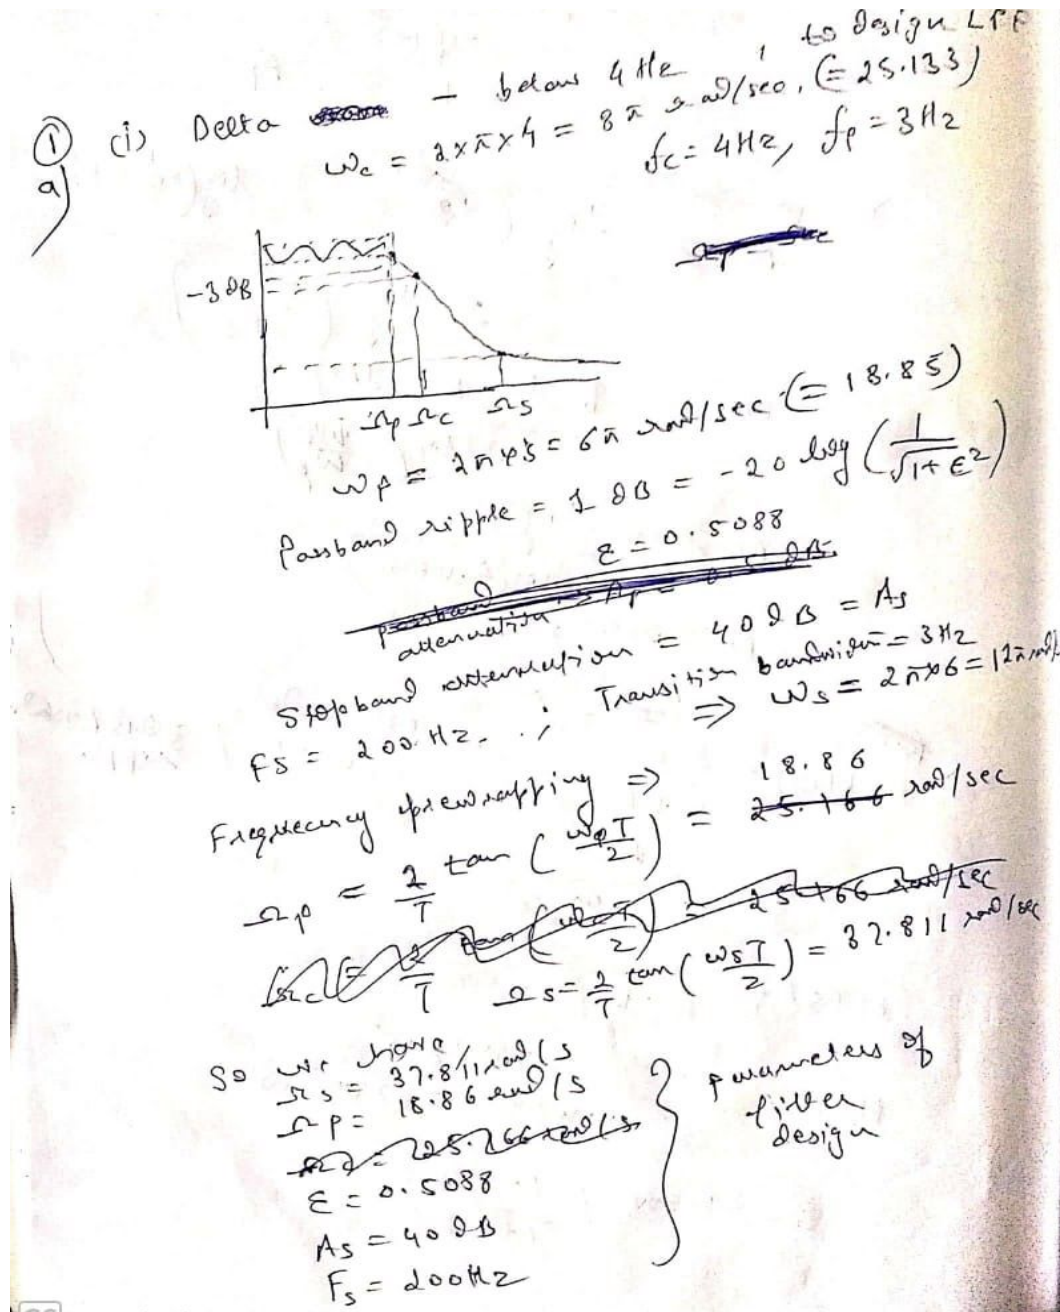 ① (i) Delta - below 4 Hz, to design LPF
a) ωc = 2×π×4 = 8π rad/sec. (= 25.133)
fc = 4Hz, fp = 3Hz
-3dB
Ωp Ωc Ωs
ωp = 2π×3 = 6π rad/sec (= 18.85)
Passband ripple = 1 dB = -20 log (1/√(1+ε²))
ε = 0.5088
Passband
attenuation
Stopband attenuation = 40 dB = As
FS = 200 Hz. ; Transition bandwidth = 3Hz
⇒ ωs = 2π×6 = 12π rad/s
Frequency prewrapping ⇒
18.86
Ωp = 2/T tan (ωpT/2) = 25.166 rad/sec
Ωc = 2/T tan (ωcT/2) = 25.166 rad/sec
Ωs = 2/T tan (ωsT/2) = 37.811 rad/sec
So we have,
Ωs = 37.811 rad/s
Ωp = 18.86 rad/s
Ωc = 25.166 rad/s
ε = 0.5088
As = 40 dB
Fs = 200Hz
parameters of
filter
design